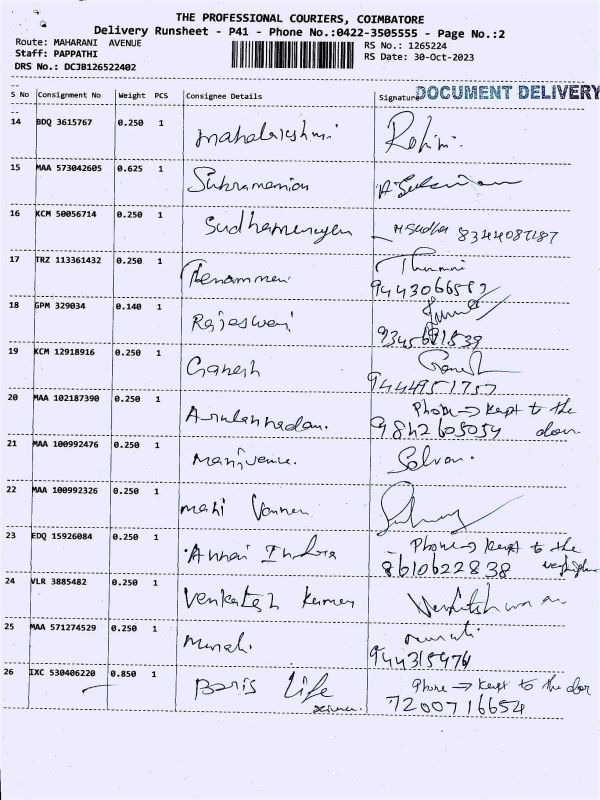 THE PROFESSIONAL COURIERS, COIMBATORE
Delivery Runsheet - P41 - Phone No.:0422-3505555 - Page No.:2
Route: MAHARANI AVENUE RS No.: 1265224
Staff: PAPPATHI RS Date: 30-Oct-2023
DRS No.: DCJB126522402
S No Consignment No Weight PCS Consignee Details Signature DOCUMENT DELIVERY
14 BDQ 3615767 0.250 1 mahalakshmi Rohini.
15 MAA 573042605 0.625 1 Subramanian
16 KCM 50056714 0.250 1 Sudhamurugan M Sudha 8344087187
17 TRZ 113361432 0.250 1
9443066582
18 GPM 329034 0.140 1 Rajeswari
9345681539
19 KCM 12918916 0.250 1 Ganesh Ganesh
9444951757
20 MAA 102187390 0.250 1 Phone → kept to the
9842605054 door.
21 MAA 100992476 0.250 1 Selvan.
22 MAA 100992326 0.250 1 mani
23 EDQ 15926084 0.250 1 Annai Indra Phone → kept to the
8610622838
24 VLR 3885482 0.250 1 Venkatesh Kumar
25 MAA 571274529 0.250 1 Murali. murali
26 IXC 530406220 0.850 1 Baris Life Phone → kept to the door
science. 7200716654